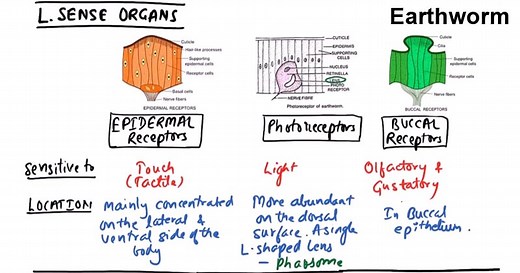 L. SENSE ORGANS
Earthworm
Cuticle
Hair-like processes
Supporting epidermal cells
Receptor cells
Basal cells
Nerve fibers
EPIDERMAL RECEPTORS
CUTICLE
EPIDERMIS
SUPPORTING CELLS
NUCLEUS
RETINELLA
PHOTO RECEPTOR
NERVE FIBRE
Photoreceptor of earthworm.
Cuticle
Cilia
Supporting epidermal cells
Receptor cells
Nerve fibers
BUCCAL RECEPTORS
EPIDERMAL
Receptors
Photoreceptors
BUCCAL
Receptors
Sensitive to
Touch
(Tactile)
Light
Olfactory &
Gustatory
LOCATION
mainly concentrated
on the lateral &
ventral side of the
body
More abundant
on the dorsal
surface. A single
L-shaped Lens
– Phaosome
In Buccal
epithelium.